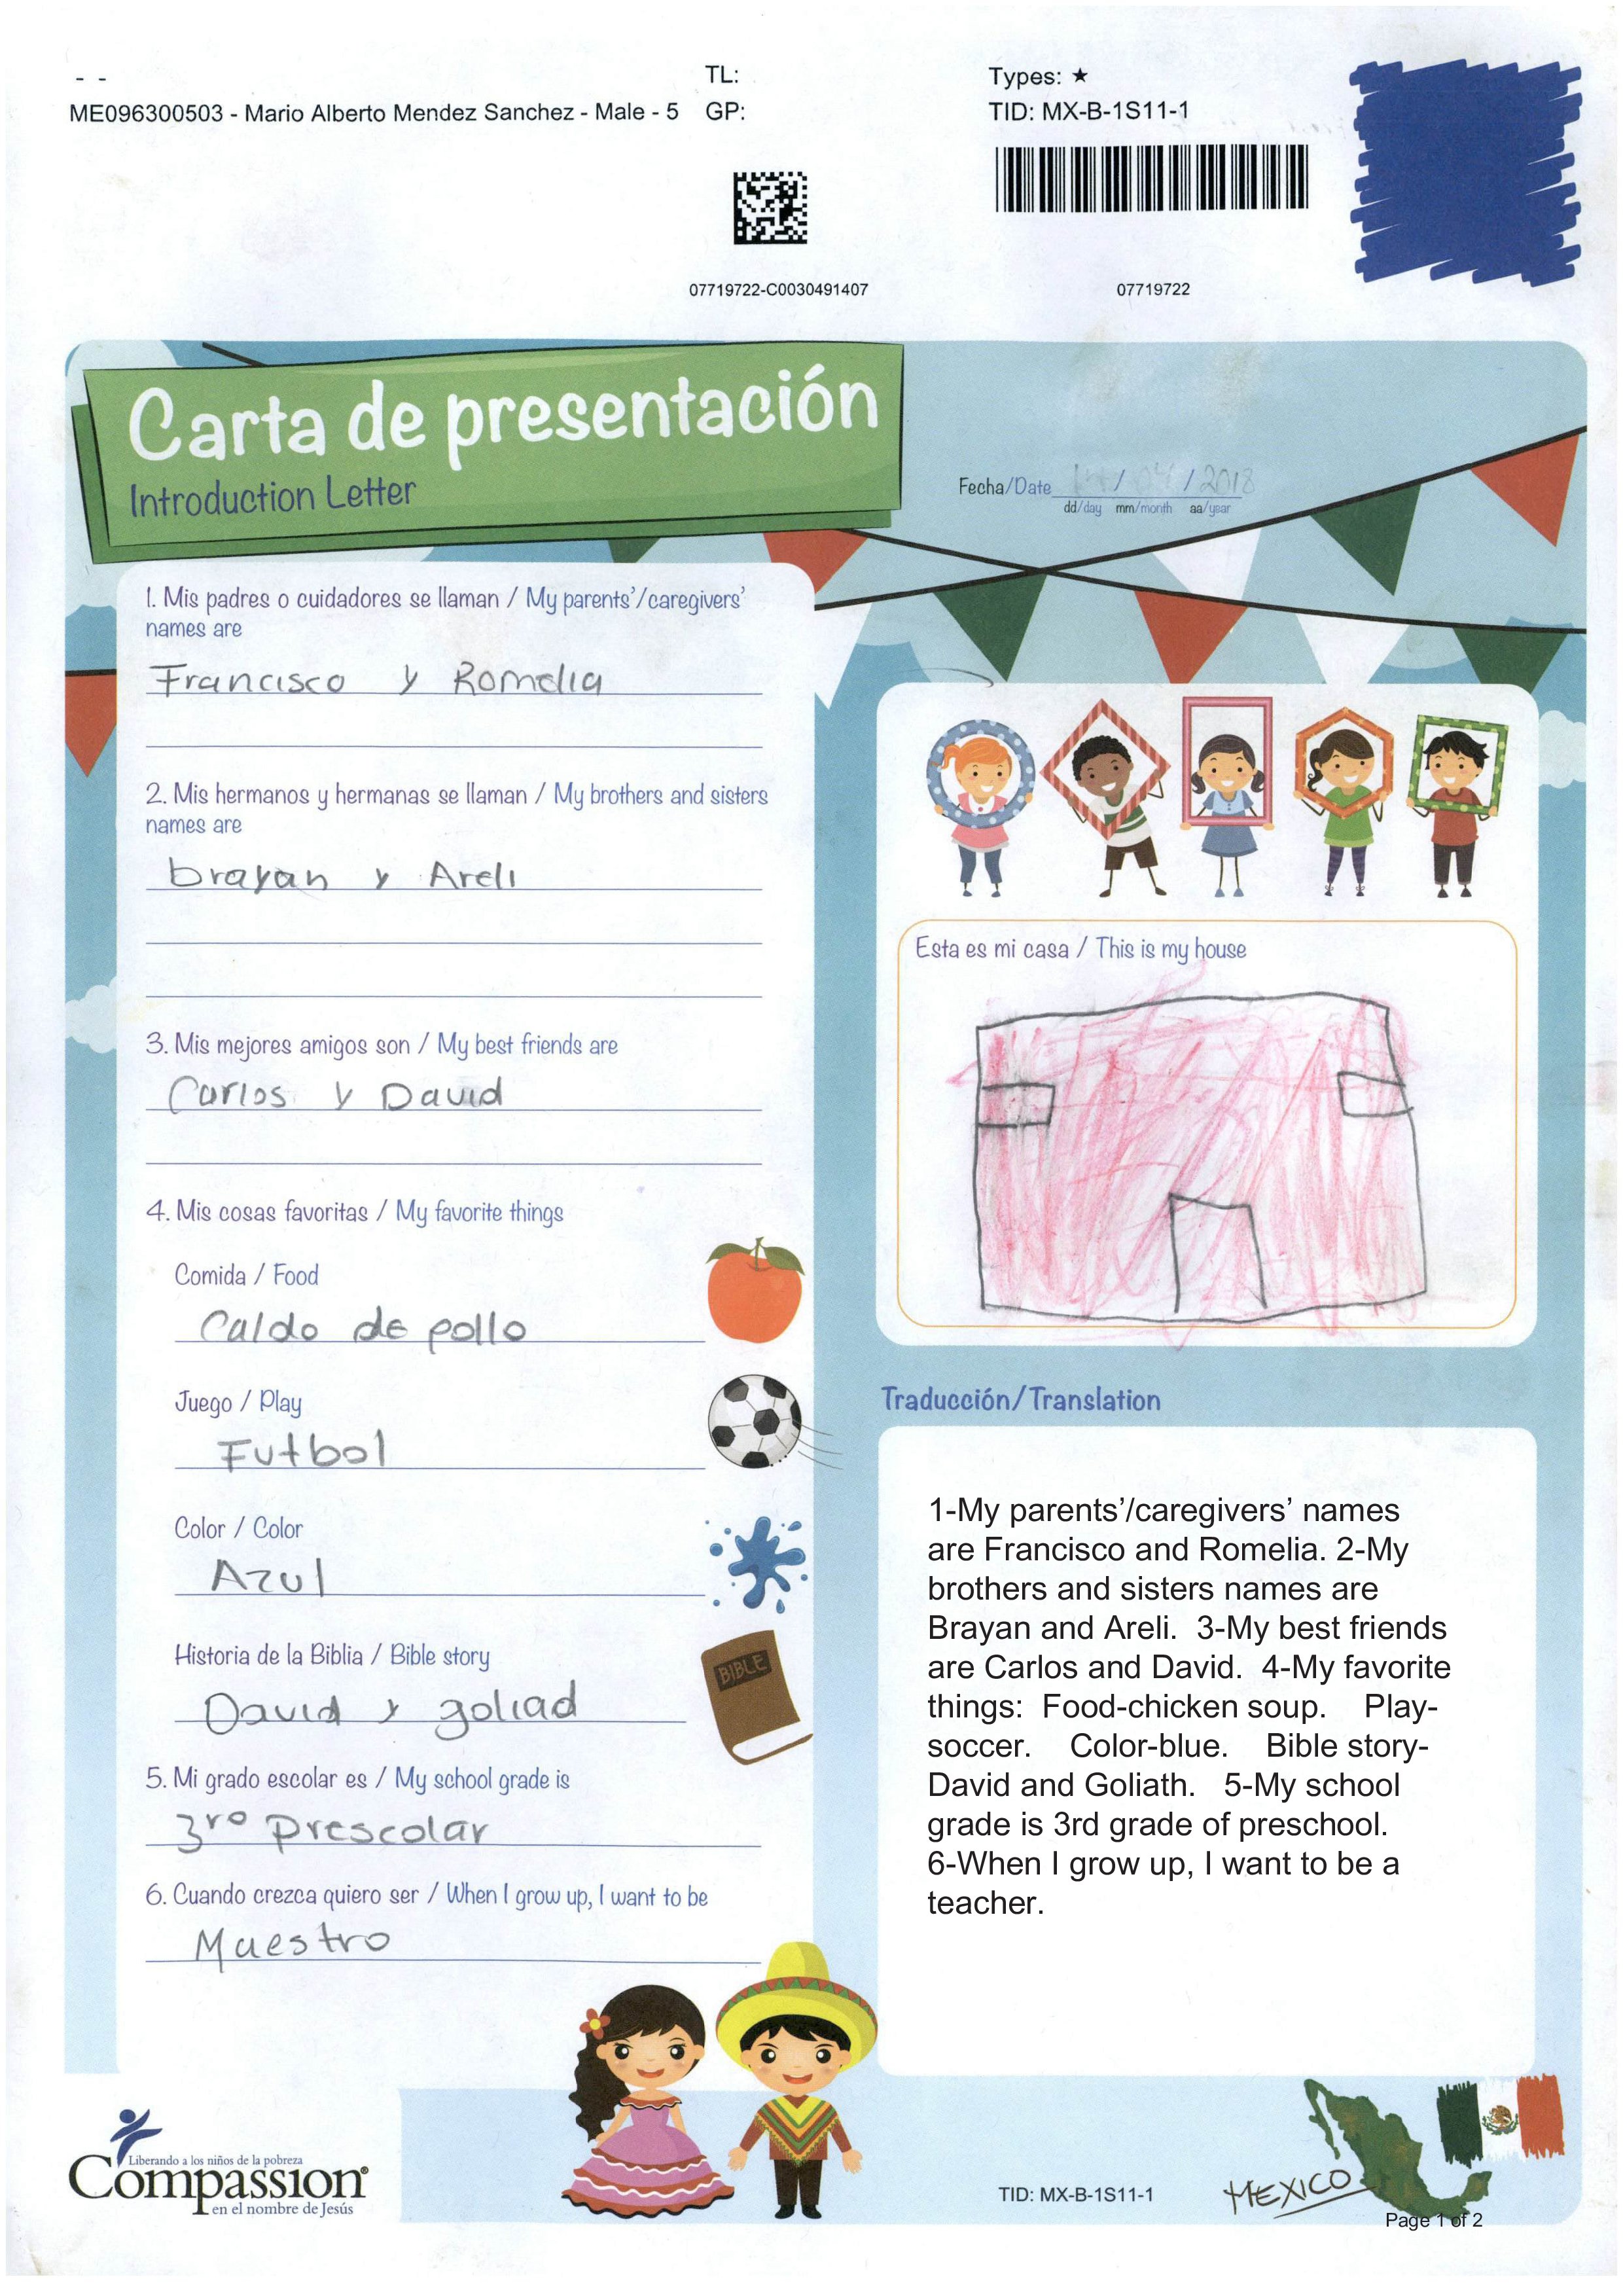 - -
TL:
Types: ★
ME096300503 - Mario Alberto Mendez Sanchez - Male - 5
GP:
TID: MX-B-1S11-1
07719722-C0030491407
07719722
Carta de presentación
Introduction Letter
Fecha/Date / 04 / 2018
dd/day mm/month aa/year
1. Mis padres o cuidadores se llaman / My parents'/caregivers'
names are
Francisco y Romelia
2. Mis hermanos y hermanas se llaman / My brothers and sisters
names are
brayan y Areli
3. Mis mejores amigos son / My best friends are
Carlos y David
4. Mis cosas favoritas / My favorite things
Comida / Food
Caldo de pollo
Juego / Play
Futbol
Color / Color
Azul
Historia de la Biblia / Bible story
BIBLE
David y goliad
5. Mi grado escolar es / My school grade is
3ro prescolar
6. Cuando crezca quiero ser / When I grow up, I want to be
Maestro
Esta es mi casa / This is my house
Traducción/Translation
1-My parents’/caregivers’ names
are Francisco and Romelia. 2-My
brothers and sisters names are
Brayan and Areli. 3-My best friends
are Carlos and David. 4-My favorite
things: Food-chicken soup. Play-
soccer. Color-blue. Bible story-
David and Goliath. 5-My school
grade is 3rd grade of preschool.
6-When I grow up, I want to be a
teacher.
Liberando a los niños de la pobreza
Compassion®
en el nombre de Jesús
TID: MX-B-1S11-1
MEXICO
Page 1 of 2